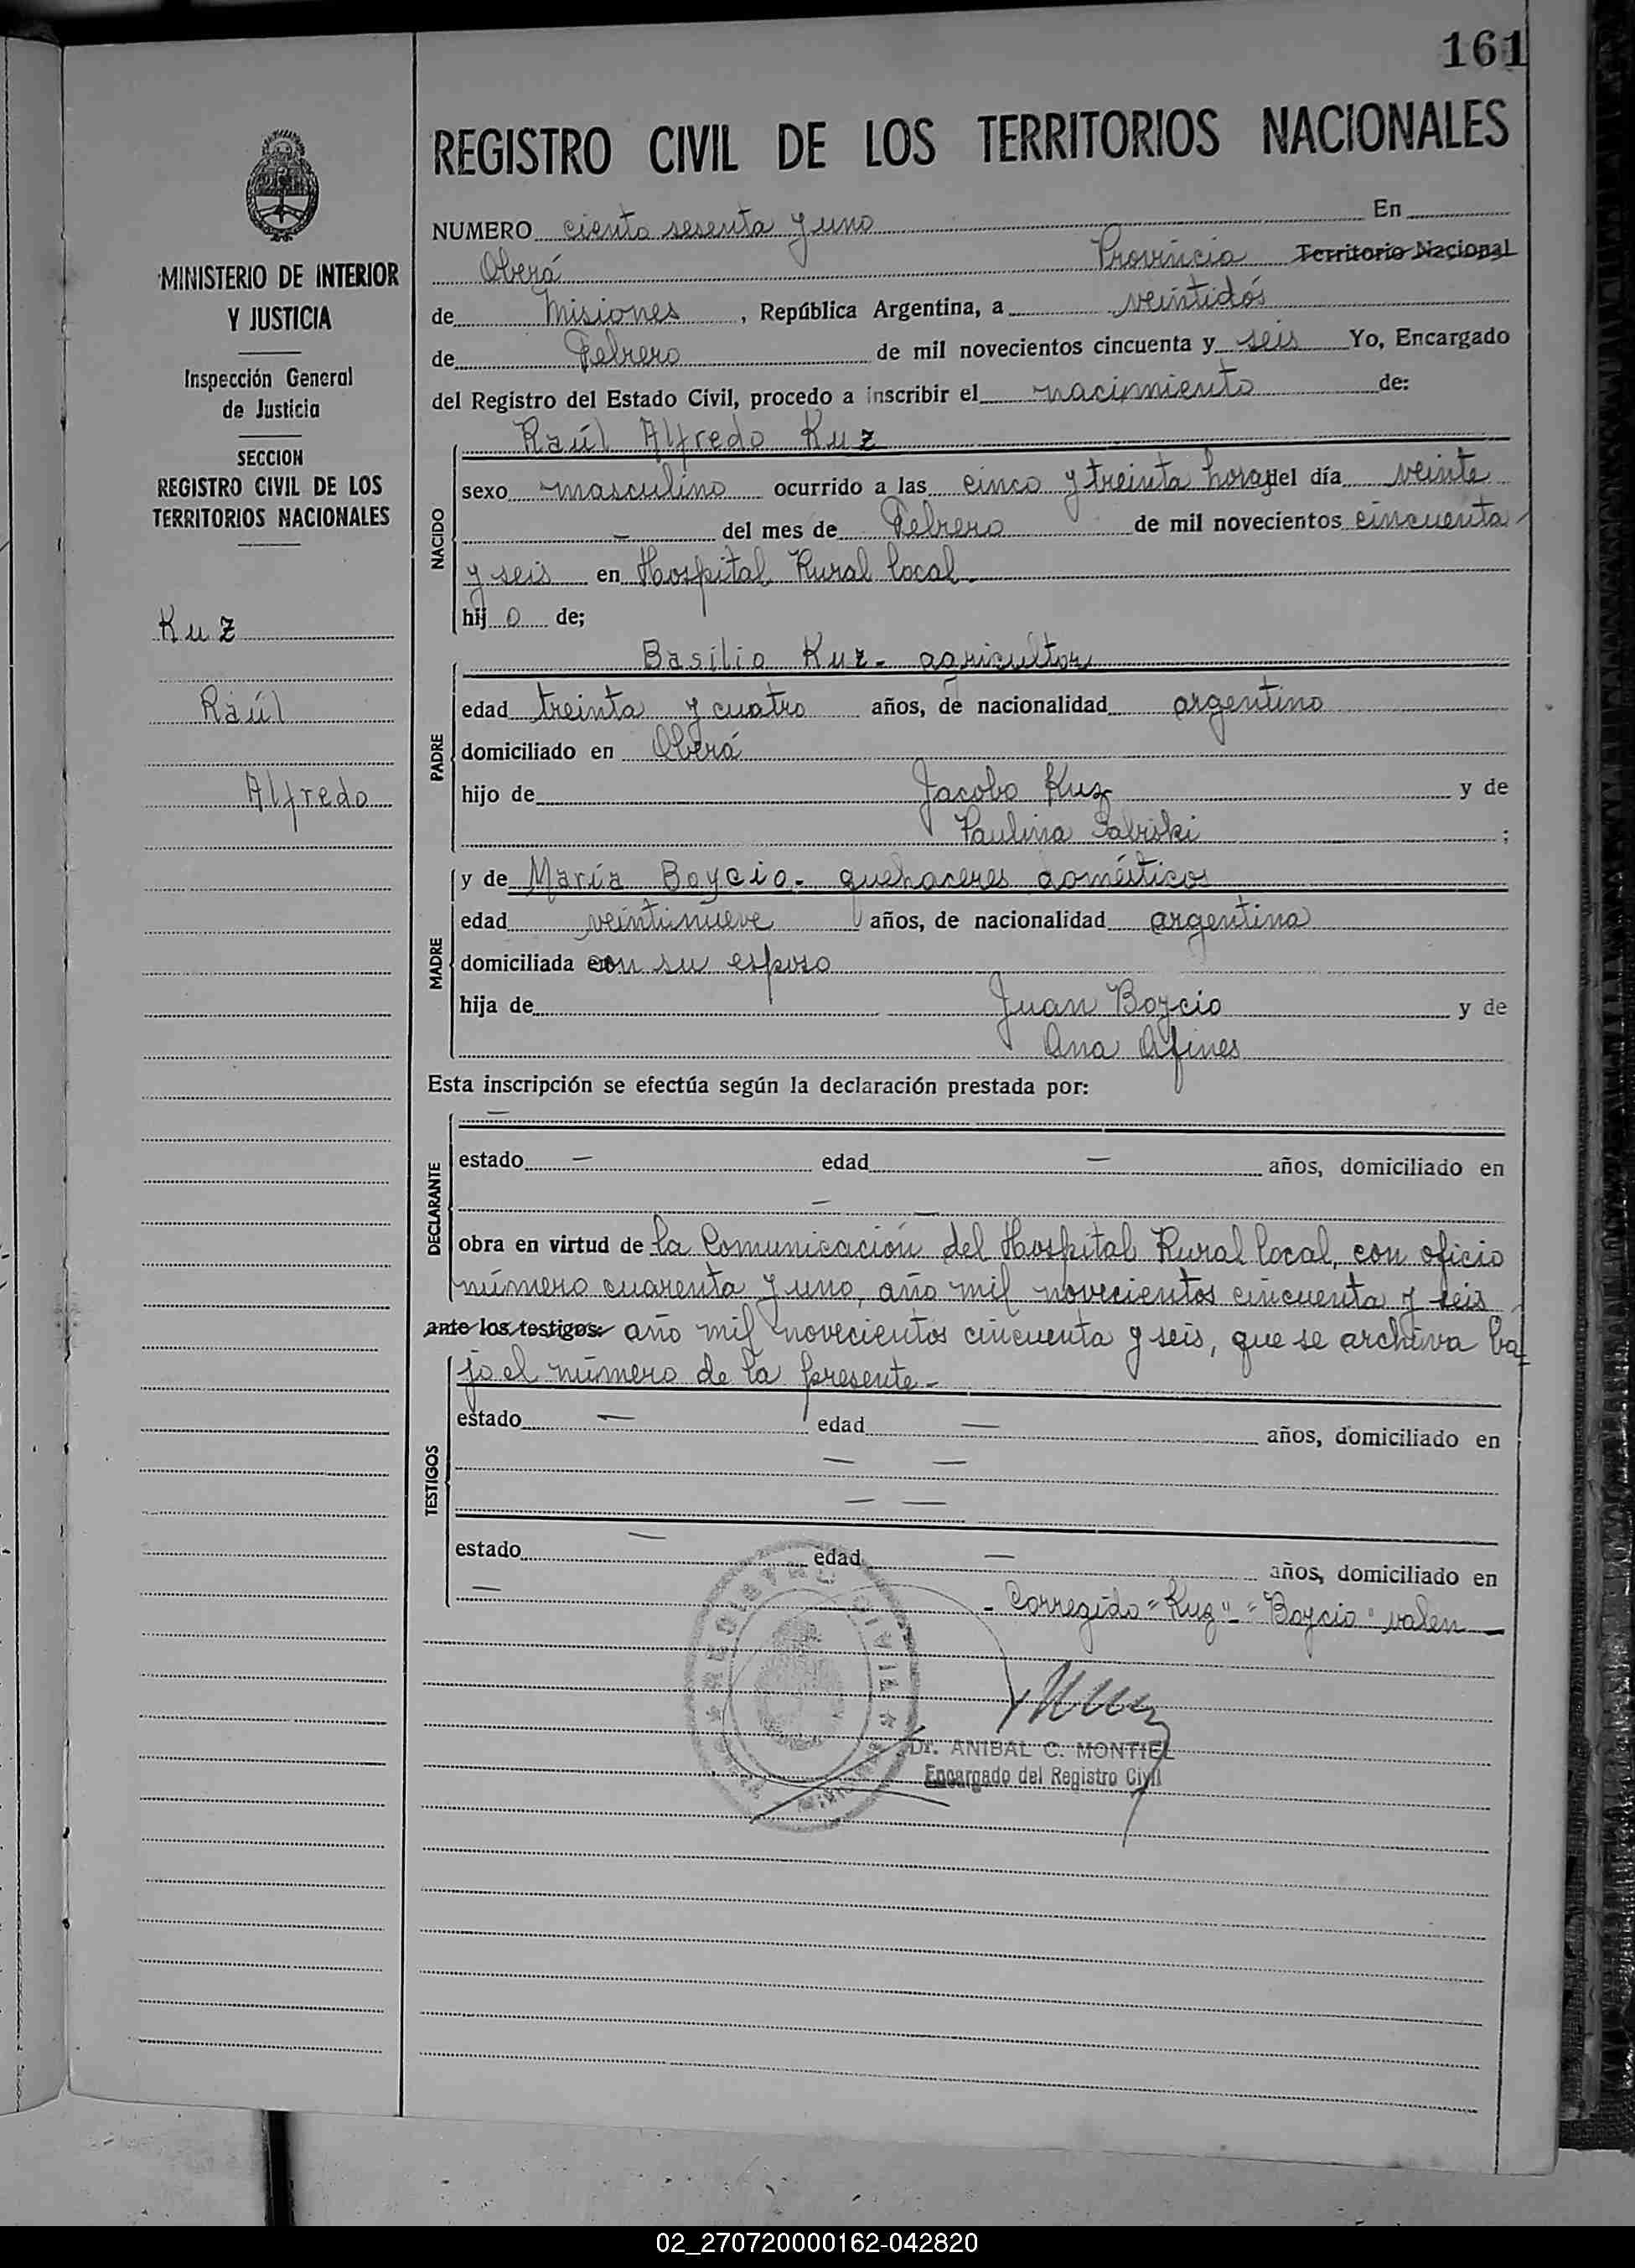 161
MINISTERIO DE INTERIOR
Y JUSTICIA
Inspección General
de Justicia
SECCION
REGISTRO CIVIL DE LOS
TERRITORIOS NACIONALES
Kuz
Raúl
Alfredo
REGISTRO CIVIL DE LOS TERRITORIOS NACIONALES
NUMERO ciento sesenta y uno En
Oberá Provincia Territorio Nacional
de Misiones, República Argentina, a veintidós
de Febrero de mil novecientos cincuenta y seis Yo, Encargado
del Registro del Estado Civil, procedo a inscribir el nacimiento de:
NACIDO
Raúl Alfredo Kuz
sexo masculino ocurrido a las cinco y treinta horas del día veinte
— del mes de Febrero de mil novecientos cincuenta
y seis en Hospital Rural local.
hijo de;
PADRE
Basilio Kuz - agricultor
edad treinta y cuatro años, de nacionalidad argentino
domiciliado en Oberá
hijo de Jacobo Kuz y de
Paulina ;
MADRE
y de María Boycio - quehaceres domésticos
edad veintinueve años, de nacionalidad argentina
domiciliada con su esposo
hija de Juan Boycio y de
Ana Afines
Esta inscripción se efectúa según la declaración prestada por:
DECLARANTE
—
estado — edad — años, domiciliado en
— —
obra en virtud de la Comunicación del Hospital Rural local, con oficio
número cuarenta y uno, año mil novecientos cincuenta y seis
ante los testigos: año mil novecientos cincuenta y seis, que se archiva ba
TESTIGOS
jo el número de la presente -
estado — edad — años, domiciliado en
— —
— —
estado — edad — años, domiciliado en
— - Corregido "Kuz" - "Boycio" valen —
REGISTRO CIVIL
Dr. ANIBAL C. MONTIEL
Encargado del Registro Civil
02_270720000162-042820